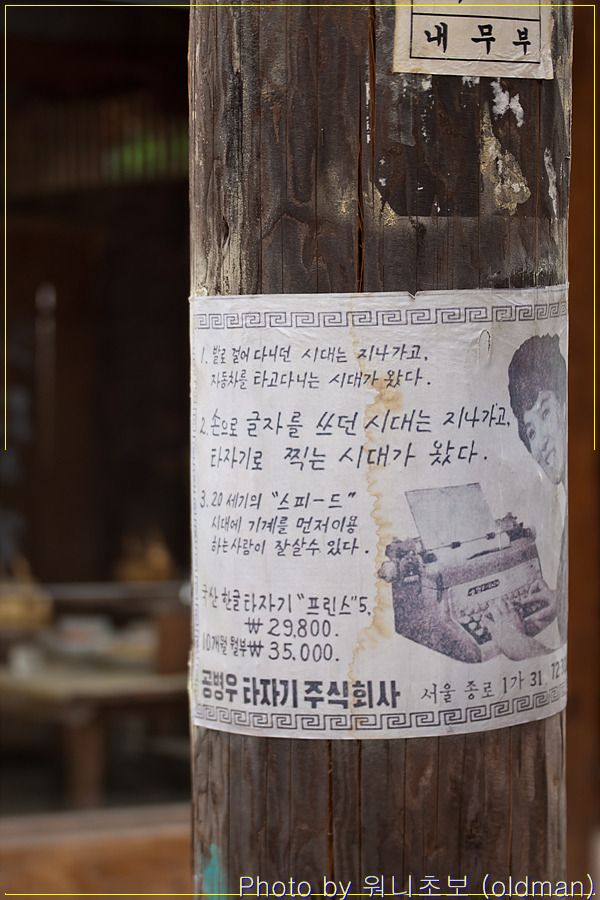 내 무 부
1. 발로 걸어 다니던 시대는 지나가고,
자동차를 타고다니는 시대가 왔다.
2. 손으로 글자를 쓰던 시대는 지나가고,
타자기로 찍는 시대가 왔다.
3. 20 세기의 "스피ー드"
시대에 기계를 먼저 이용
하는사람이 잘살수 있다.
국산 한글타자기 "프린스" 5.
₩ 29,800.
10개월 월부 ₩ 35,000.
공병우 타자기 주식회사 서울 종로 1가 31
Photo by 워니초보 (oldman)